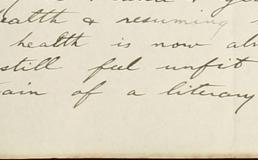 ealth & resuming
health is now al
still feel unfit
ain of a literary